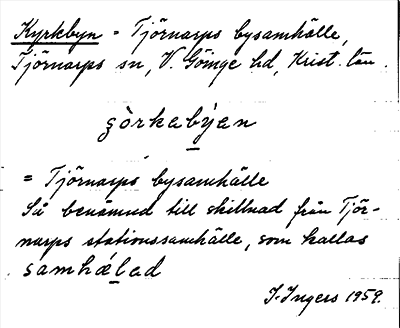 Kyrkbyn = Tjörnarps bysamhälle,
Tjörnarps sn, V. Göinge hd, Krist. län.
çòrkabýen
= Tjörnarps bysamhälle
Så benämnd till skillnad från Tjör-
narps stationssamhälle, som kallas
samhǽlad
I. Ingers 1959.